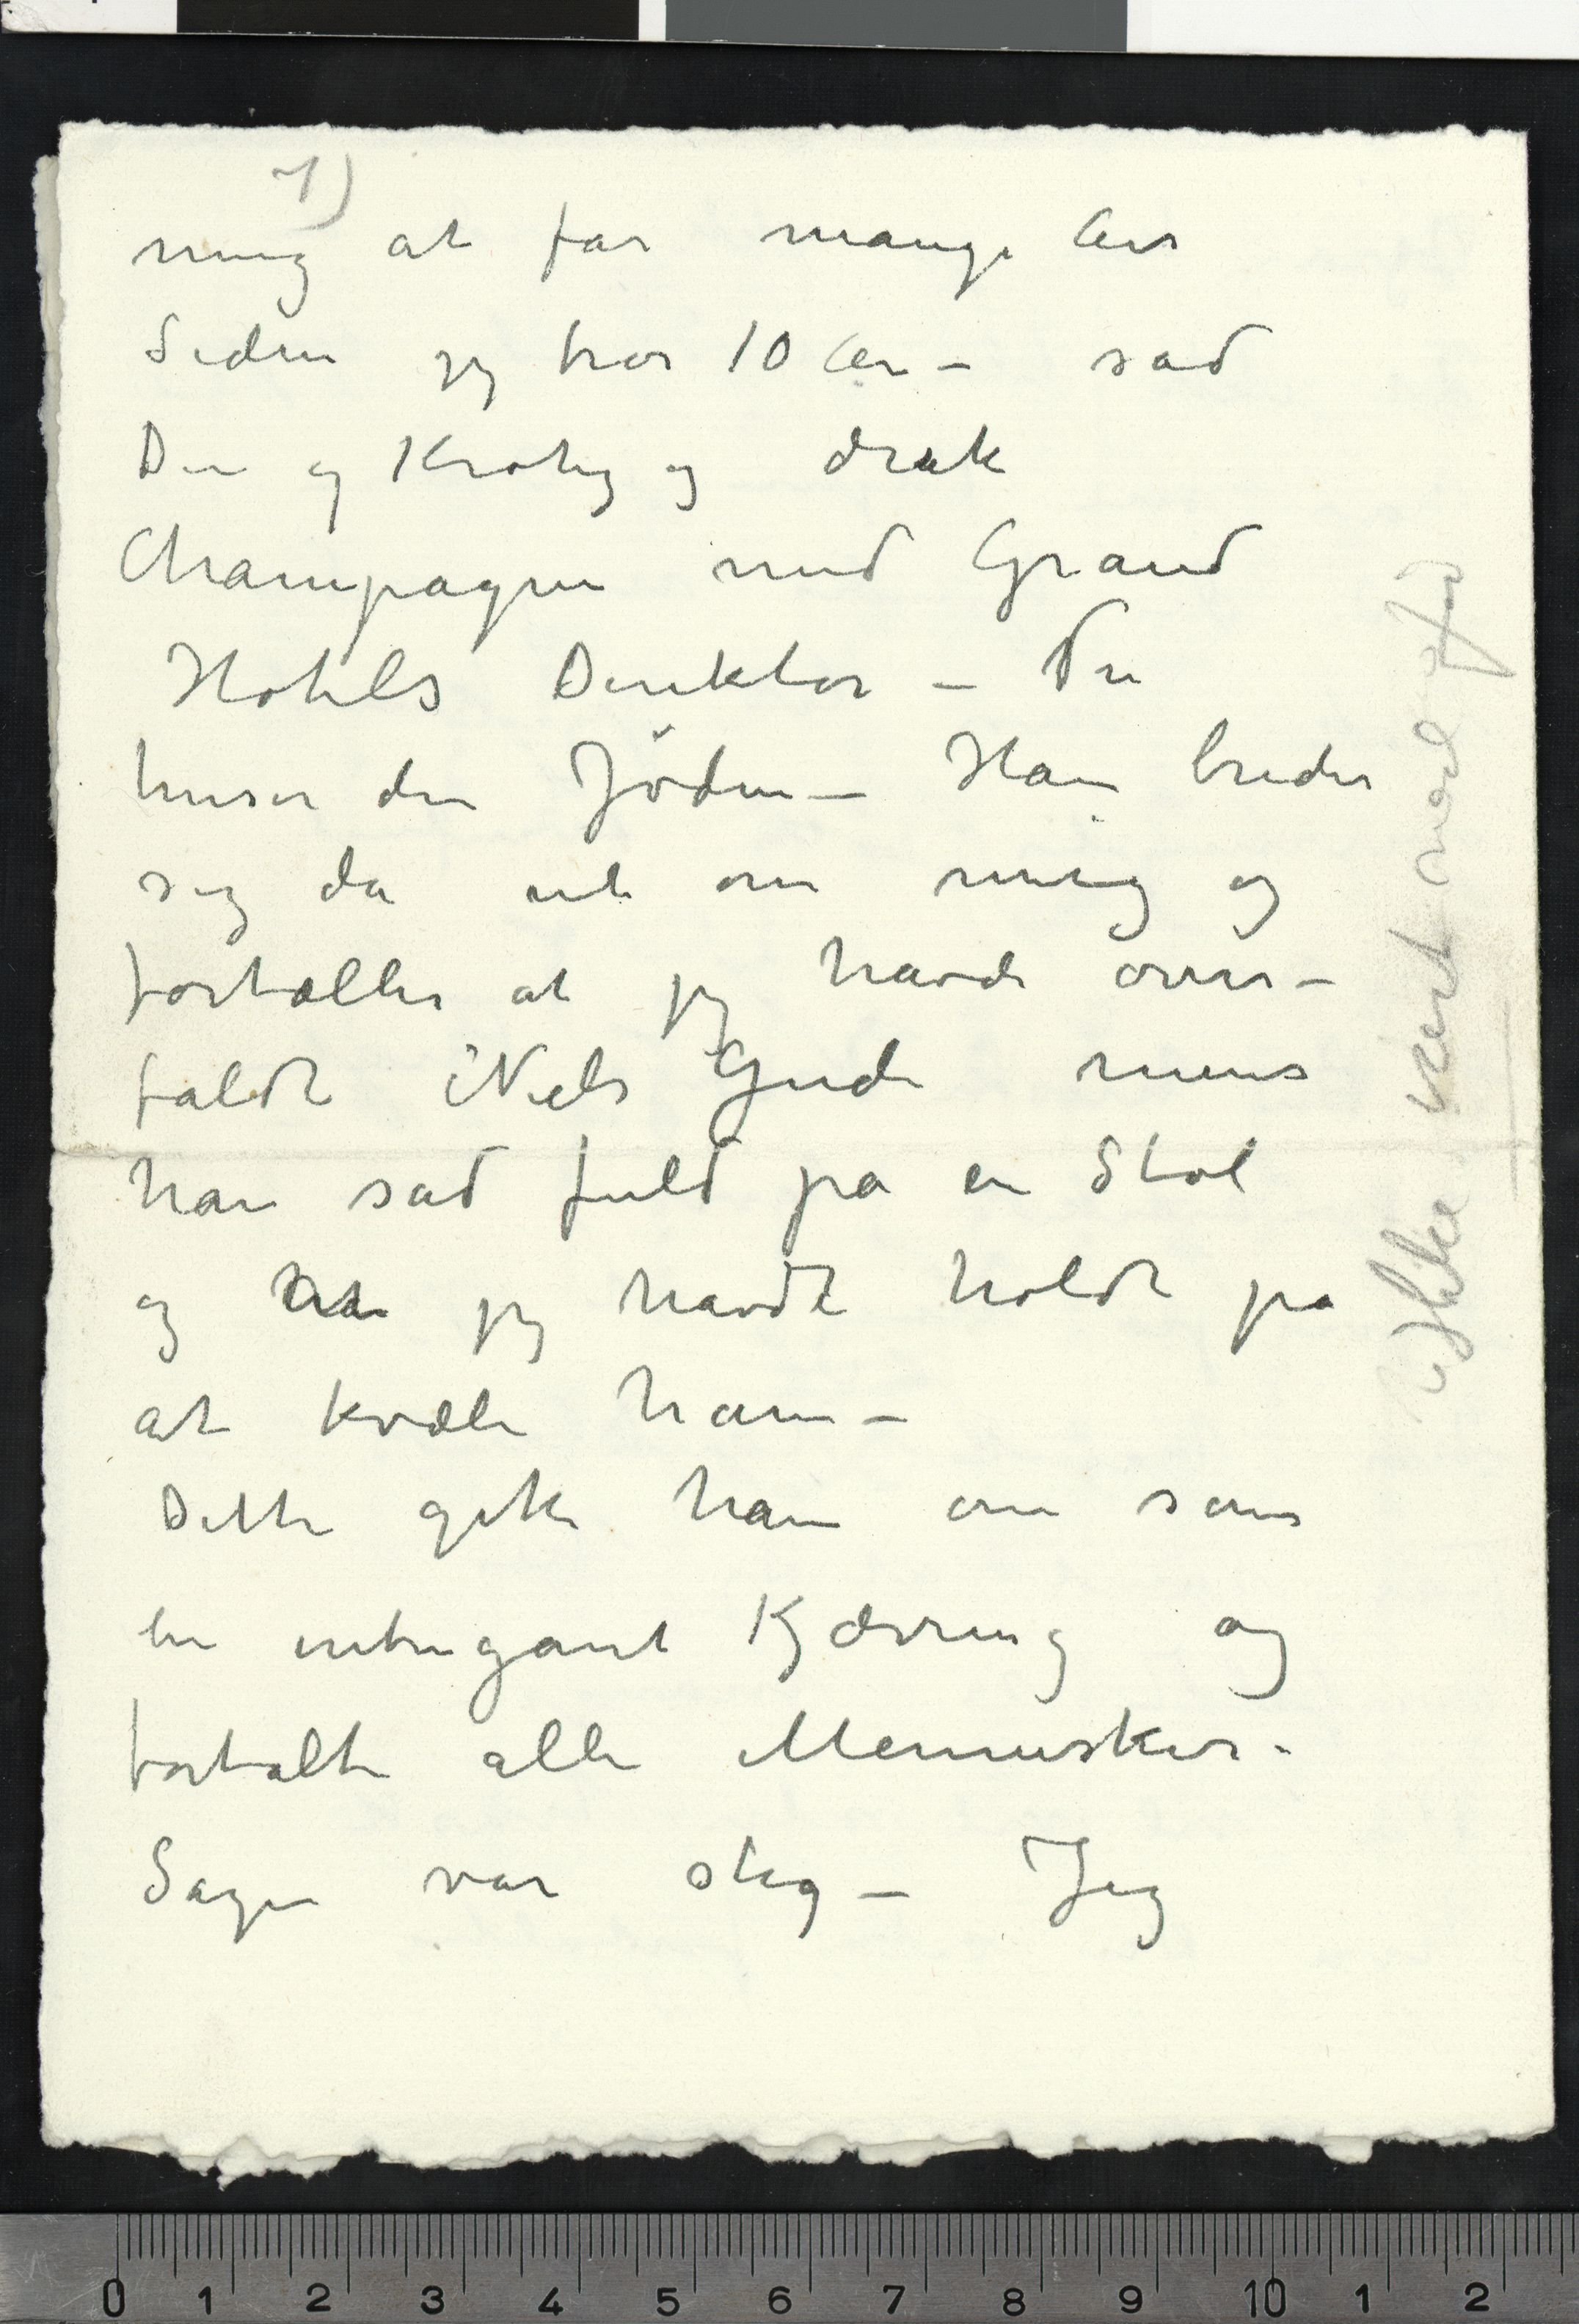 1)
mig at for mange Aar
Siden jeg tror 10 Aar – sad
Du og Krohg og drak
Champagne med Grand
Hotels Direktør – Du
husker den Jøden – Han breder
sig da ut om mig og
fortæller at jeg havde over-
faldt Niels Gude mens
han sad fuld på en Stol
og at jeg havdt holdt på
at kvæle ham –
Dette gik han om som
en intrigant Kjærring og
fortalte alle Mennesker.
Sagen var slig – Jeg
Ikke sent
0 1 2 3 4 5 6 7 8 9 10 1 2